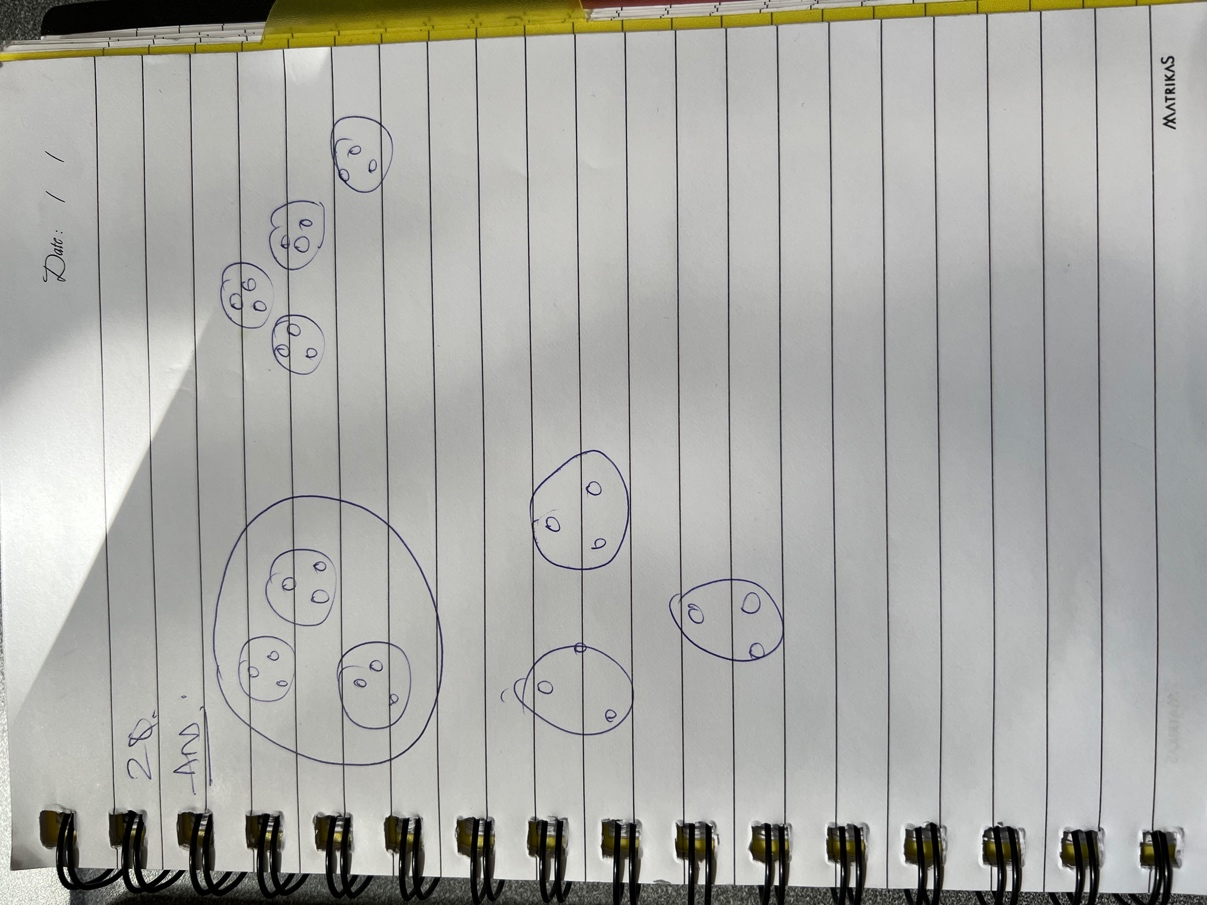 Date: / /
28.
Ans:
MATRIKAS